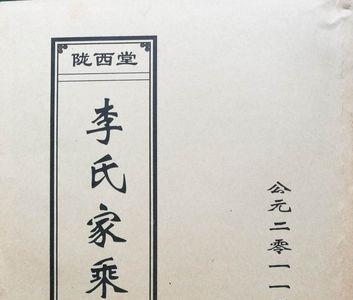 陇西堂
李氏家乘
公元二零一一